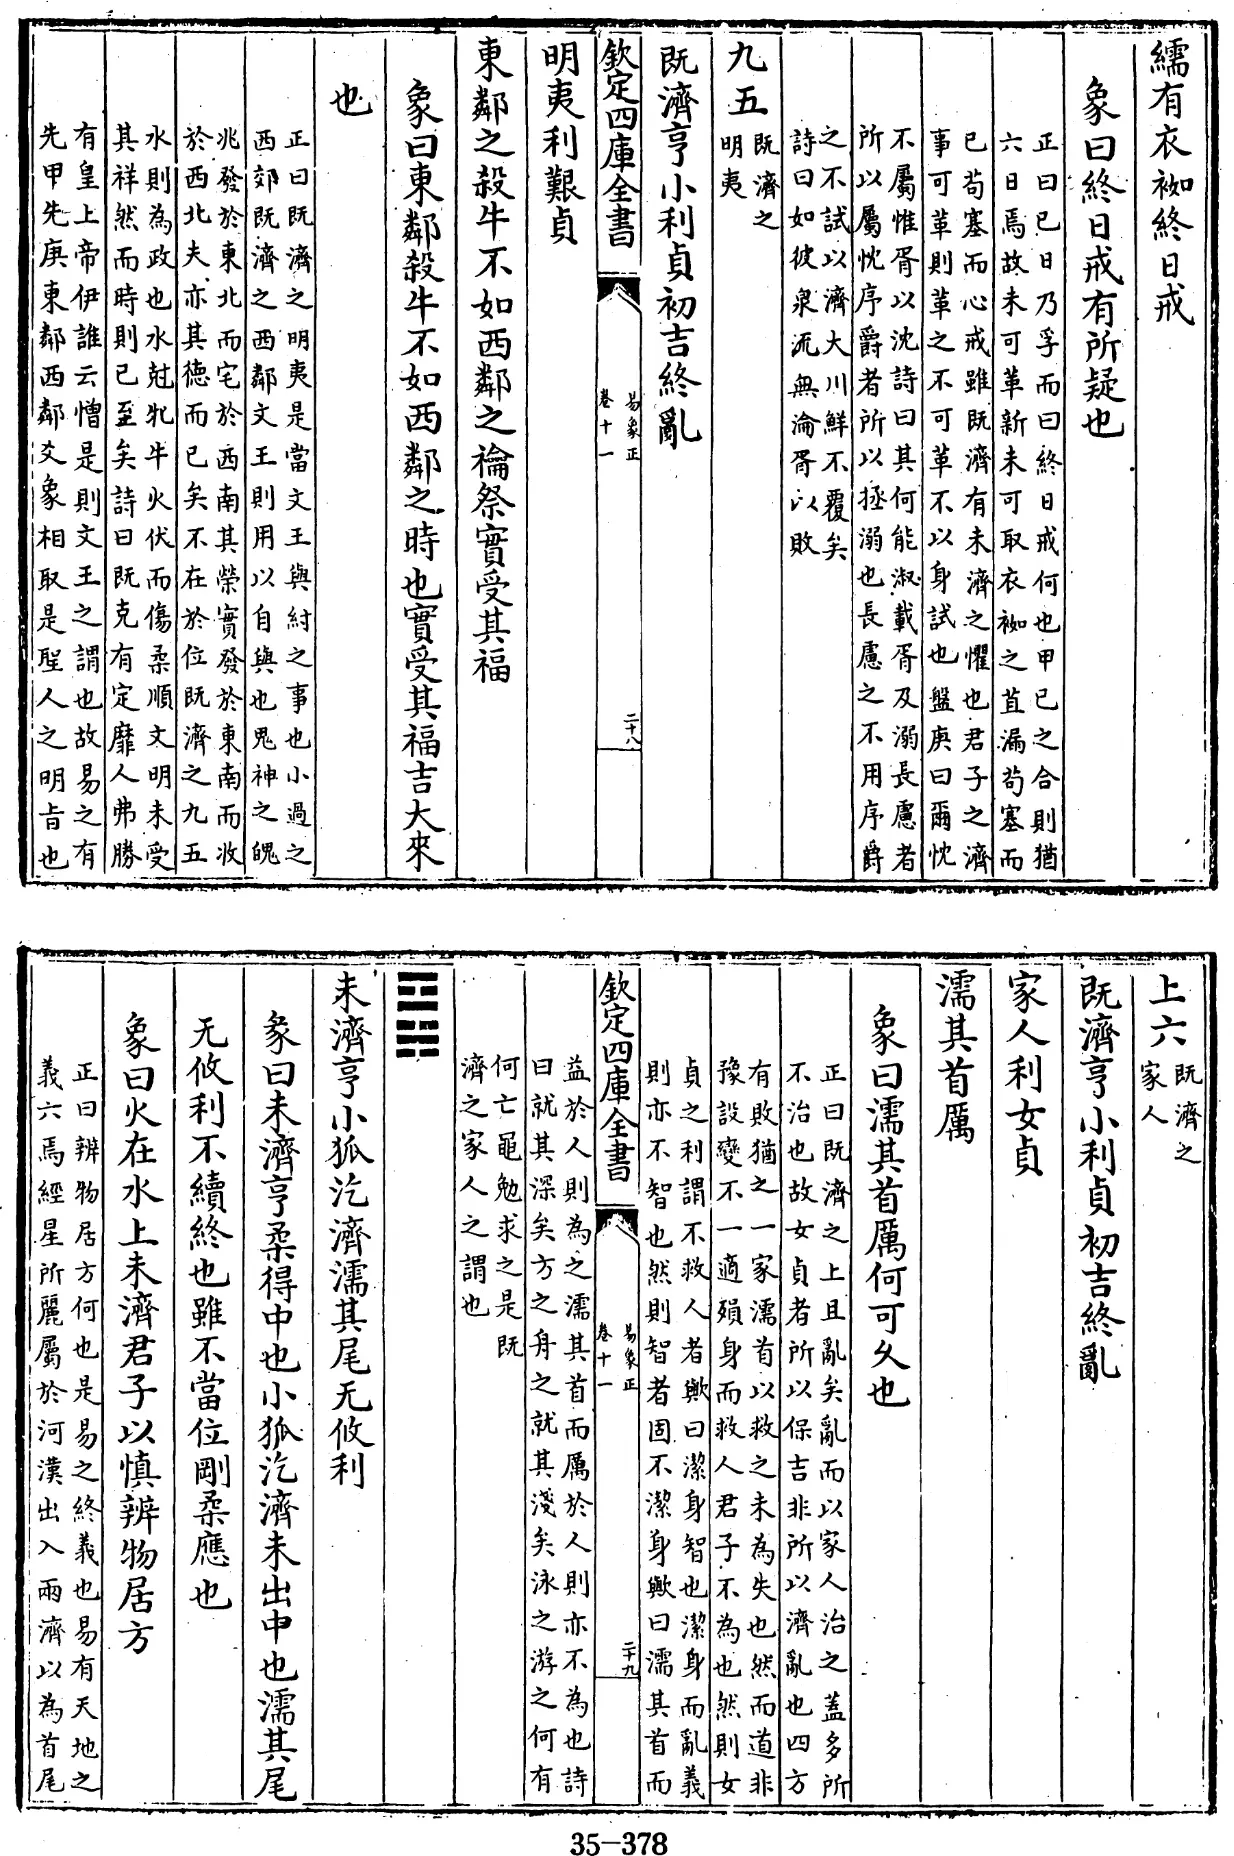 繻有衣袽終日戒
象曰終日戒有所疑也
正曰已日乃孚而曰終日戒何也甲已之合則猶
六日焉故未可革新未可取衣袽之苴漏茍塞而
已茍塞而心戒雖既濟有未濟之懼也君子之濟
事可革則革之不可革不以身試也盤庚曰爾忱
不屬惟胥以沈詩曰其何能淑載胥及溺長慮者
所以屬忱序爵者所以拯溺也長慮之不用序爵
之不試以濟大川鮮不覆矣
詩曰如彼泉流無淪胥以敗
九五
既濟之
明夷
既濟亨小利貞初吉終亂
欽定四庫全書
易象正
卷十一
二十八
明夷利艱貞
東鄰之殺牛不如西鄰之禴祭實受其福
象曰東鄰殺牛不如西鄰之時也實受其福吉大來
也
正曰既濟之明夷是當文王與紂之事也小過之
西郊既濟之西鄰文王則用以自與也鬼神之魄
兆發於東北而宅於西南其榮實發於東南而收
於西北夫亦其德而已矣不在於位既濟之九五
水則為政也水尅牝牛火伏而傷柔順文明未受
其祥然而時則已至矣詩曰既克有定靡人弗勝
有皇上帝伊誰云憎是則文王之謂也故易之有
先甲先庚東鄰西鄰爻象相取是聖人之明旨也
上六
既濟之
家人
既濟亨小利貞初吉終亂
家人利女貞
濡其首厲
象曰濡其首厲何可久也
正曰既濟之上且亂矣亂而以家人治之蓋多所
不治也故女貞者所以保吉非所以濟亂也四方
有敗猶之一家濡首以救之未為失也然而道非
豫設變不一適殞身而救人君子不為也然則女
貞之利謂不救人者歟曰潔身智也潔身而亂義
則亦不智也然則智者固不潔身歟曰濡其首而
欽定四庫全書
易象正
卷十一
二十九
益於人則為之濡其首而厲於人則亦不為也詩
曰就其深矣方之舟之就其淺矣泳之游之何有
何亡黽勉求之是既
濟之家人之謂也
未濟亨小狐汔濟濡其尾无攸利
彖曰未濟亨柔得中也小狐汔濟未出中也濡其尾
无攸利不續終也雖不當位剛柔應也
象曰火在水上未濟君子以慎辨物居方
正曰辨物居方何也是易之終義也易有天地之
義六焉經星所麗屬於河漢出入兩濟以為首尾
35-378